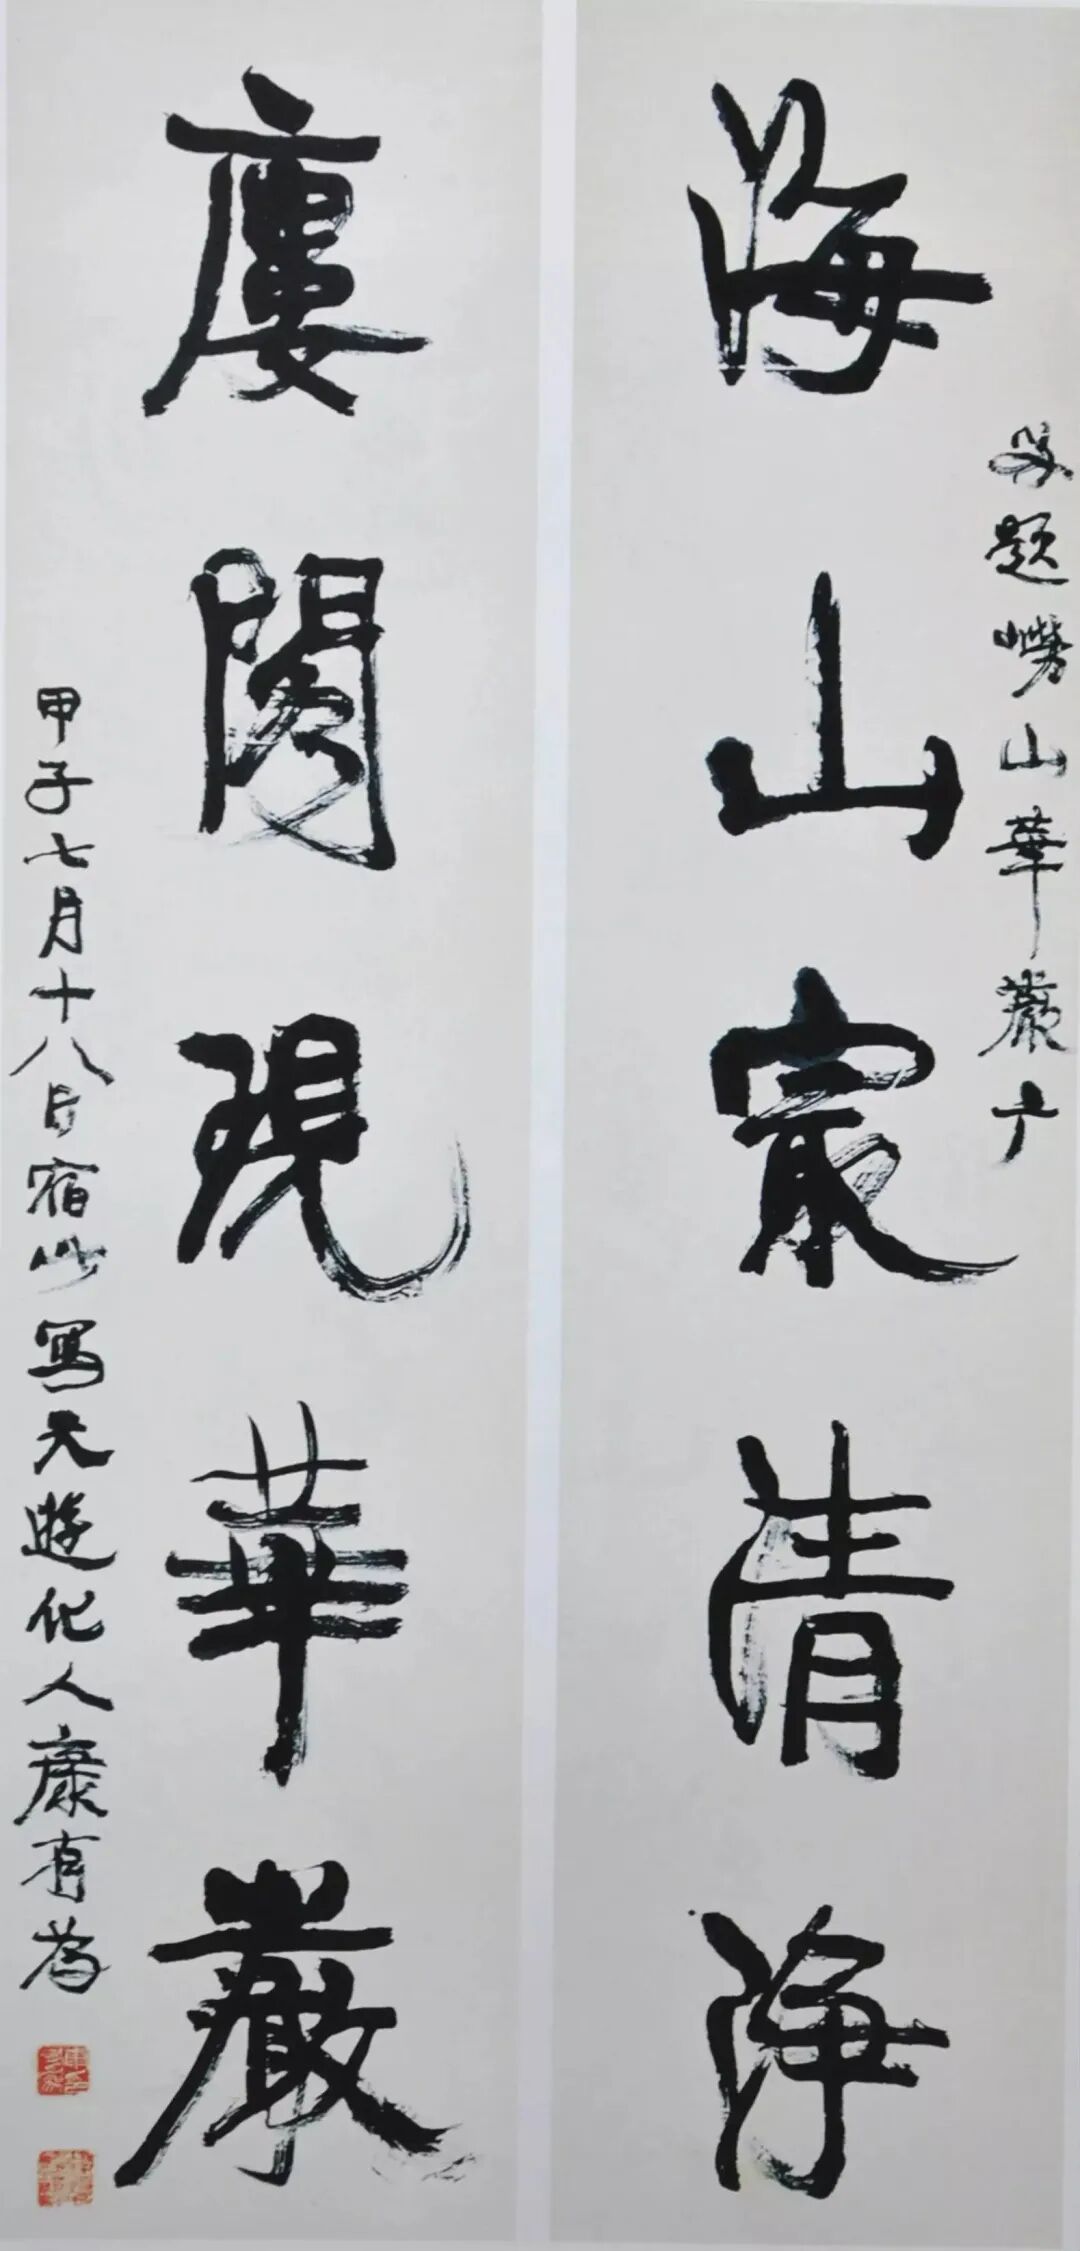 題嶗山華嚴广
海山㝡清淨
廔閣現華嚴
甲子七月十八日宿此寫天遊化人康有為